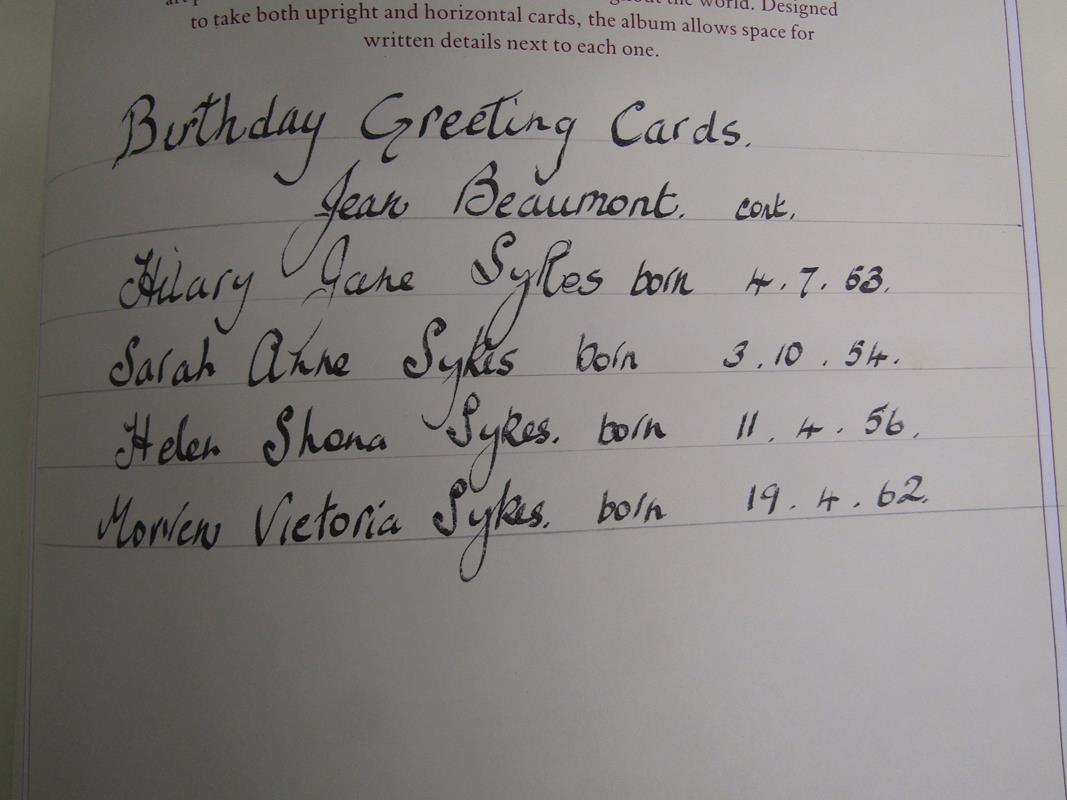 the world. Designed
to take both upright and horizontal cards, the album allows space for
written details next to each one.
Birthday Greeting Cards.
Jean Beaumont. cont.
Hilary Jane Sykes born 4.7.53.
Sarah Anne Sykes born 3.10.54.
Helen Shona Sykes. born 11.4.56.
Morven Victoria Sykes. born 19.4.62.